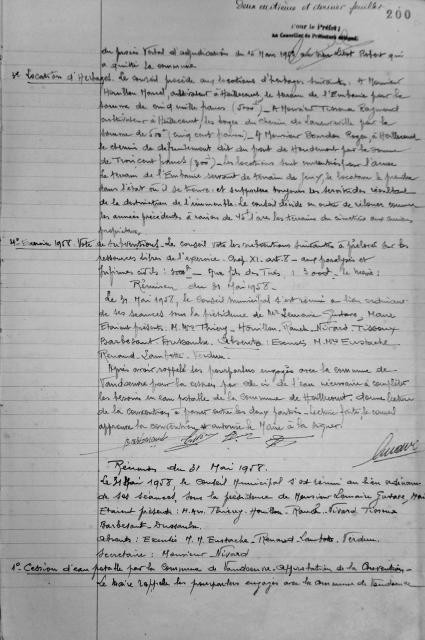 Deux centième et dernier feuillet
200
Pour le Préfet:
Le Conseiller de Préfecture délégué,
du procès verbal d'adjudication du 15 Mars 1958 au lieu de qui
a quitté la commune
3° Location d'Herbages. Le conseil procède aux locations d'herbages suivantes. A Monsieur
Houillon Marcel, cultivateur à Haillecourt, le terrain de l'Embanie pour la
somme de cinq mille francs (5000f) - A Monsieur Tissoux Raymond
cultivateur à Haillecourt, les berges du chemin de par la
somme de 500f (cinq cent francs). A Monsieur Roger à Haillecourt
le chemin de défruitement dit du pont de pour la somme
de Trois cent francs (300f) - les locations sont consenties pour l'année
le terrain de l'Embanie servant de terrain de jeux, le locataire le prendra
dans l'état où il se trouve et supportera toujours les servitudes résultant
de la destination de l'immeuble. Le conseil décide en outre de relouer comme
les années précédentes à raison de 45f l'are les terrains du cimetière aux anciens
propriétaires.
4° Exercice 1958. Vote de Subventions. Le conseil vote les subventions suivantes à prélever sur les
ressources libres de l'exercice. Chap. XI. art. 8 - aux paralysés et
infirmes civils : 3000f - Aux fils des Tués : 3000f. le Maire :
Réunion du 31 Mai 1958.
Le 31 Mai 1958, le Conseil Municipal s'est réuni au lieu ordinaire
de ses séances sous la présidence de Mr Lemaire Gustave, Maire
Etaient présents : M. Mrs Thiéry - Houillon, Rauch - Nivard - Tissoux
Barbesant Dussaulx. Absents : Excusés M. Mrs Eustache,
Renaud - Lambotte - Verdun.
Après avoir rappelé les pourparlers engagés avec la commune de
Vandoeuvre pour la cession par celle-ci de l'eau nécessaire à compléter
les besoins en eau potable de la commune de Haillecourt, donne lecture
de la convention à passer entre les deux parties - Lecture faite, le conseil
approuve la convention et autorise le Maire à la signer.
Réunion du 31 Mai 1958.
Le 31 Mai 1958, le Conseil Municipal s'est réuni au lieu ordinaire
de ses séances, sous la présidence de Monsieur Lemaire Gustave, Maire
Etaient présents : M. Mrs. Thiéry - Houillon - Rauch - Nivard Tissoux
Barbesant - Dussaulx.
Absents : Excusés M. M. Eustache - Renaud - Lambotte - Verdun.
Secrétaire : Monsieur - Nivard
1° Cession d'eau potable par la Commune de Vandoeuvre. Approbation de la Convention -
Le Maire rappelle les pourparlers engagés avec la commune de Vandoeuvre